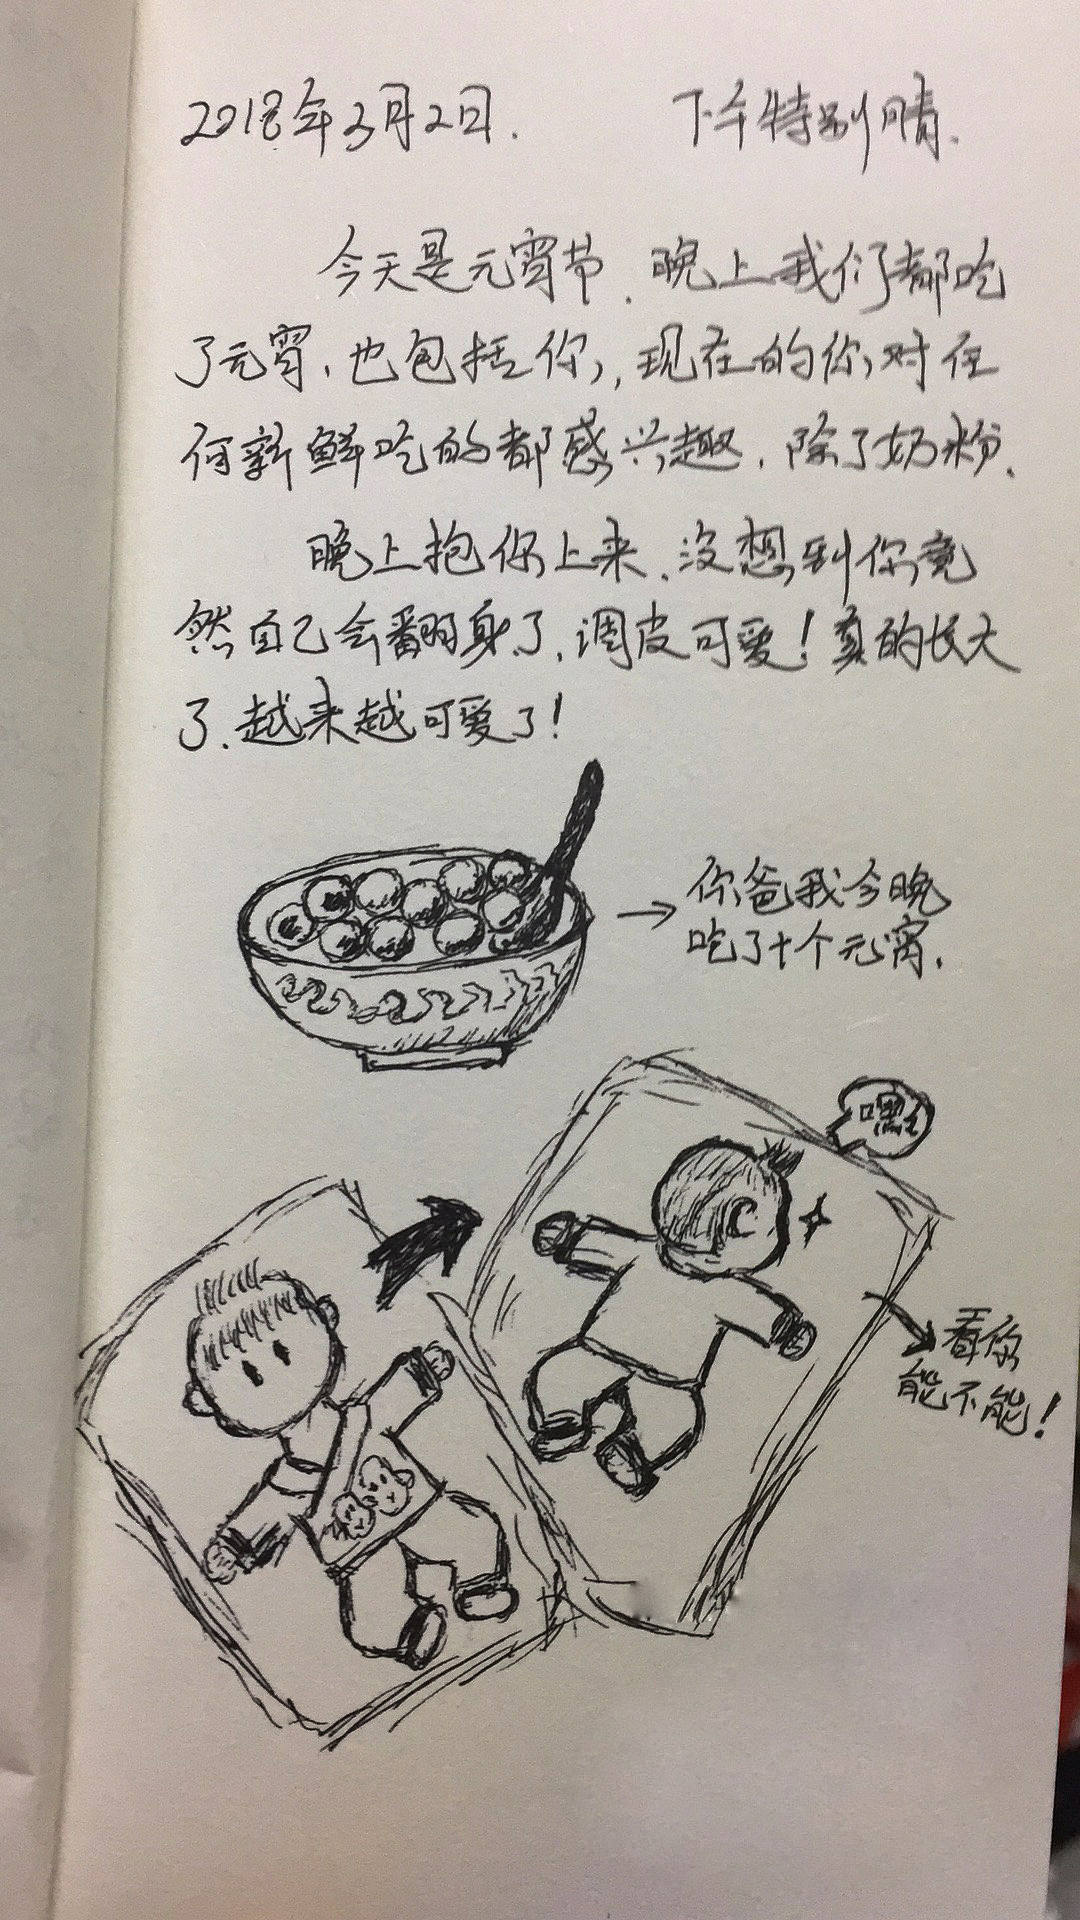 2018年3月2日.
下午特别晴.
今天是元宵节.晚上我们都吃
了元宵,也包括你,现在的你对任
何新鲜吃的都感兴趣,除了奶粉.
晚上抱你上来,没想到你竟
然自己会翻身了,调皮可爱!真的长大
了.越来越可爱了!
你爸我今晚
吃了十个元宵.
嘿
看你
能不能!